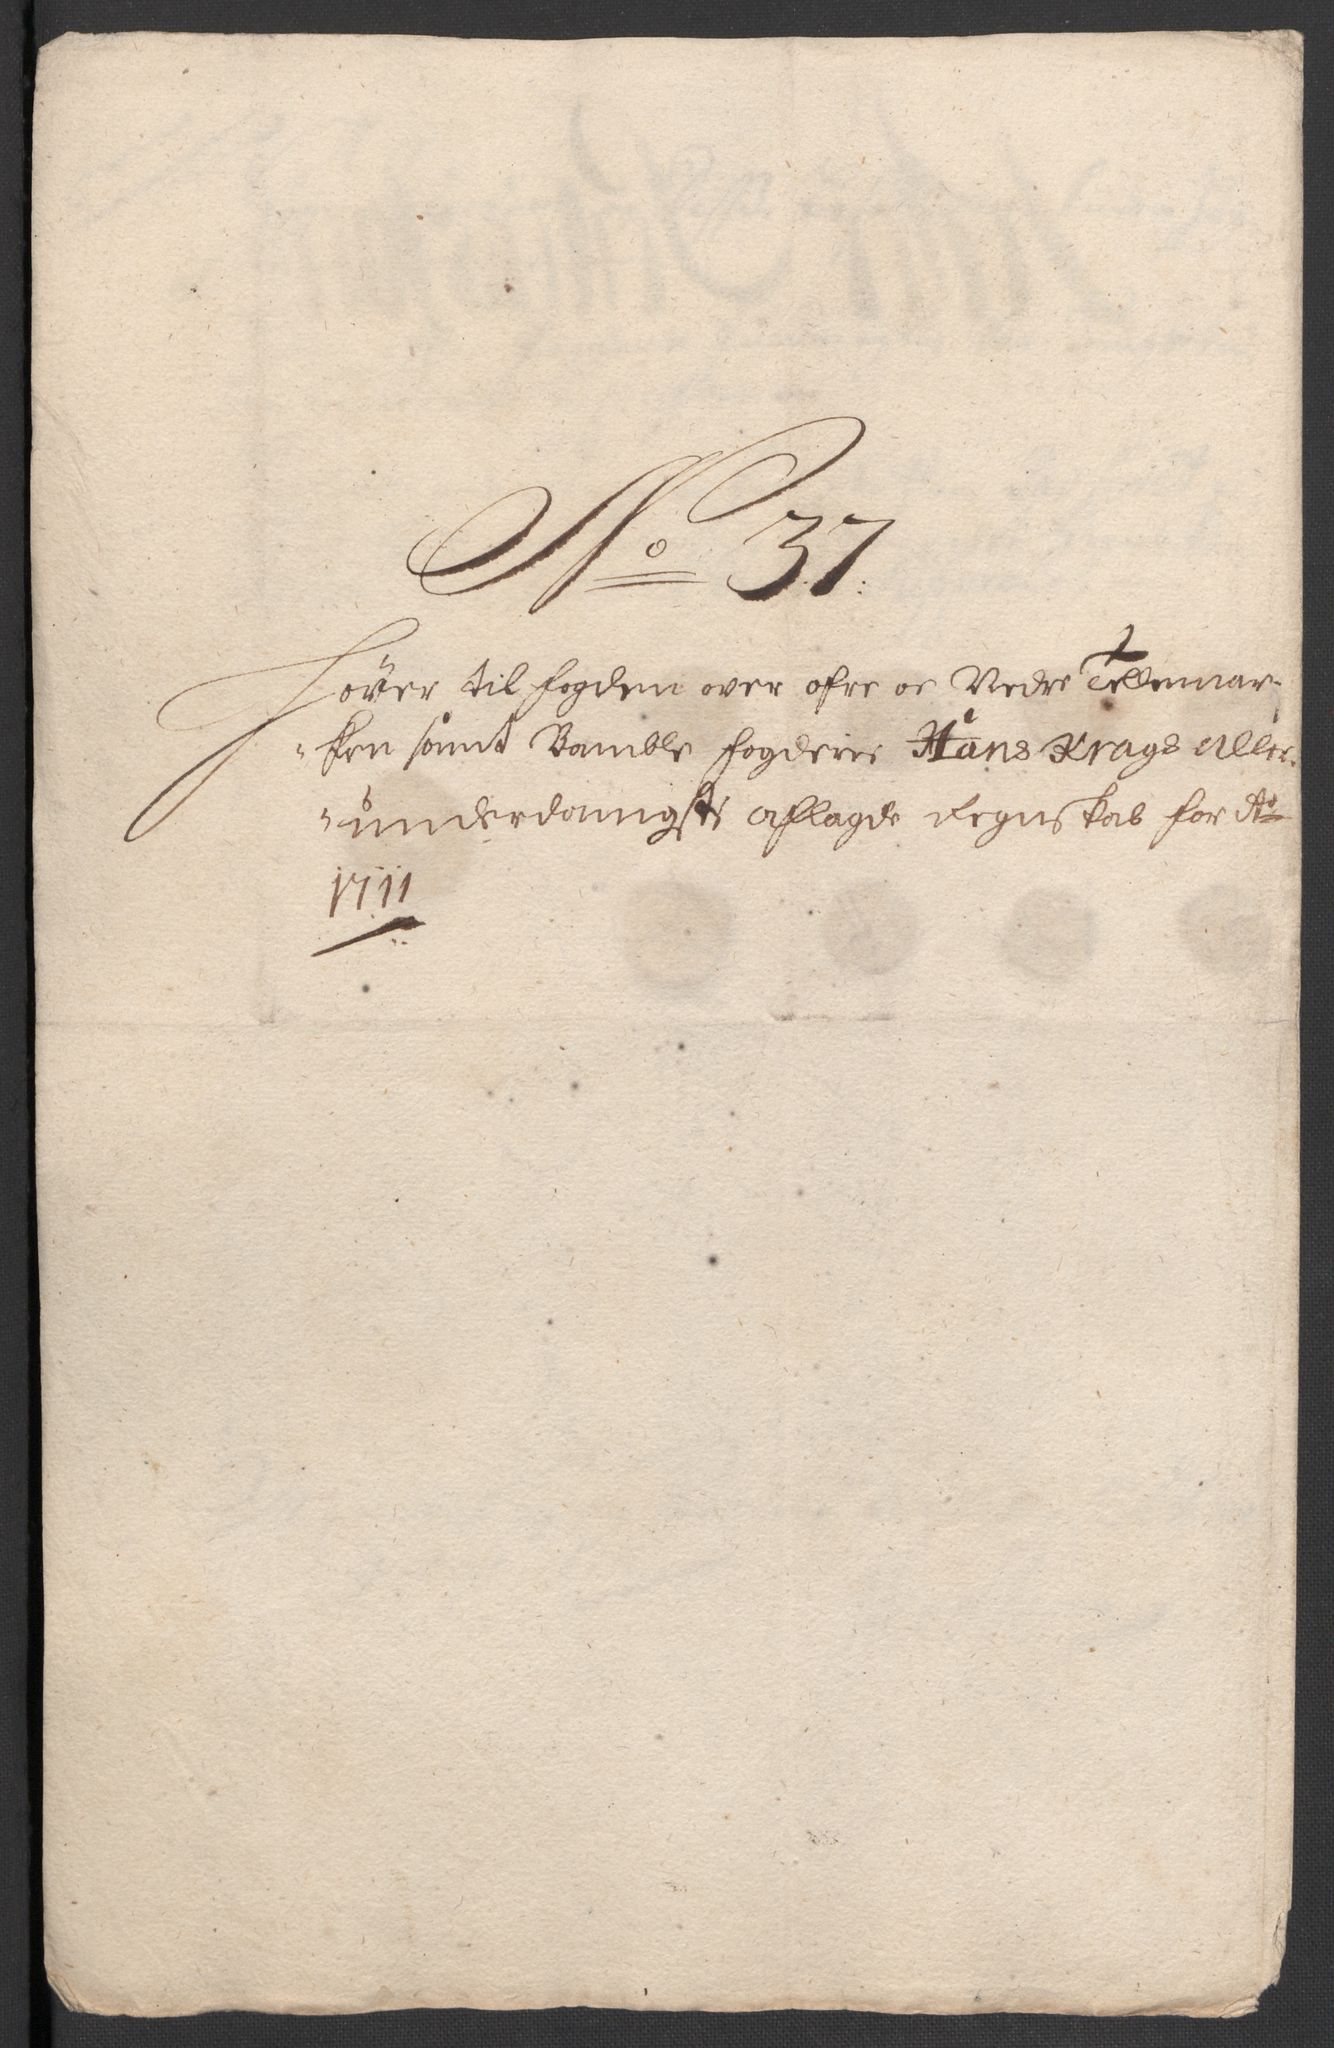 No 37.
Hörer til fogden over øfre oc Nedre Tellemar-
-ken samt Bamble fogderie Hans Krags Aller-
-underdanigste aflagde Regnskab for Ao
1711